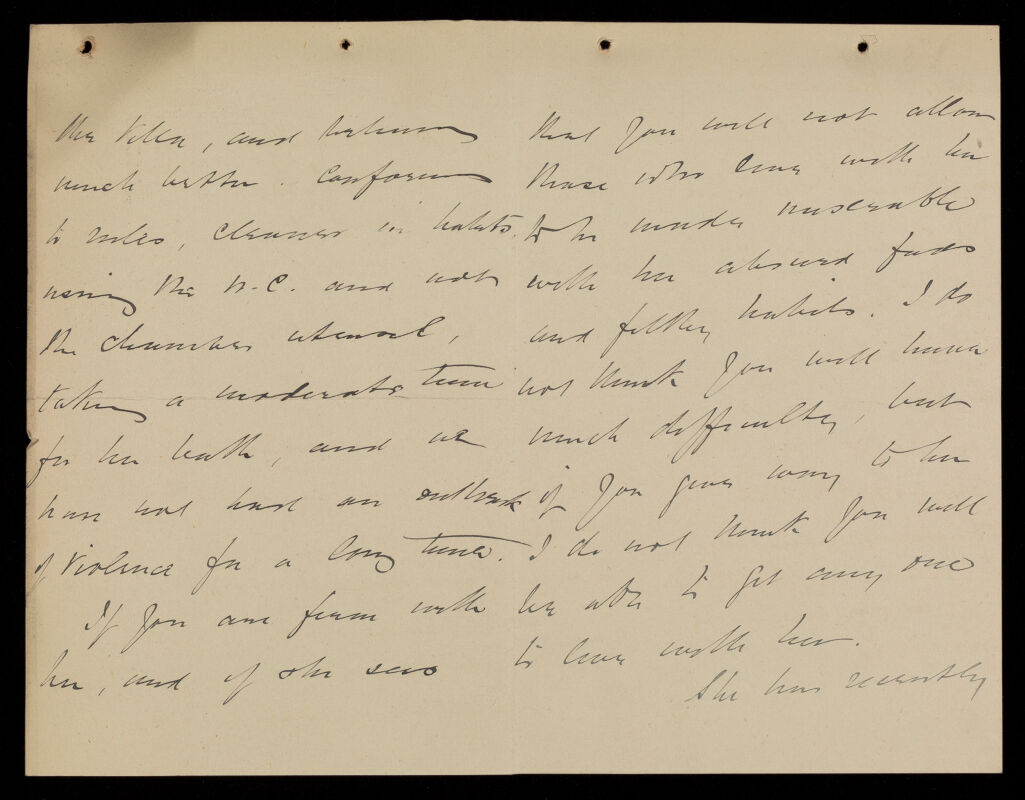 the Villa, and behaves
much better. Conforms
to rules, cleaner in habits,
using the W.C. and not
the chamber utensil,
taking a moderate time
for her bath, and we
have not had an outbreak
of violence for a long time.
If you are firm with
her, and if she sees
that you will not allow
those who live with her
to be made miserable
with her absurd fads
and filthy habits. I do
not think you will have
much difficulty, but
if you give way to her
I do not think you will
be able to get any one
to live with her.
She has recently